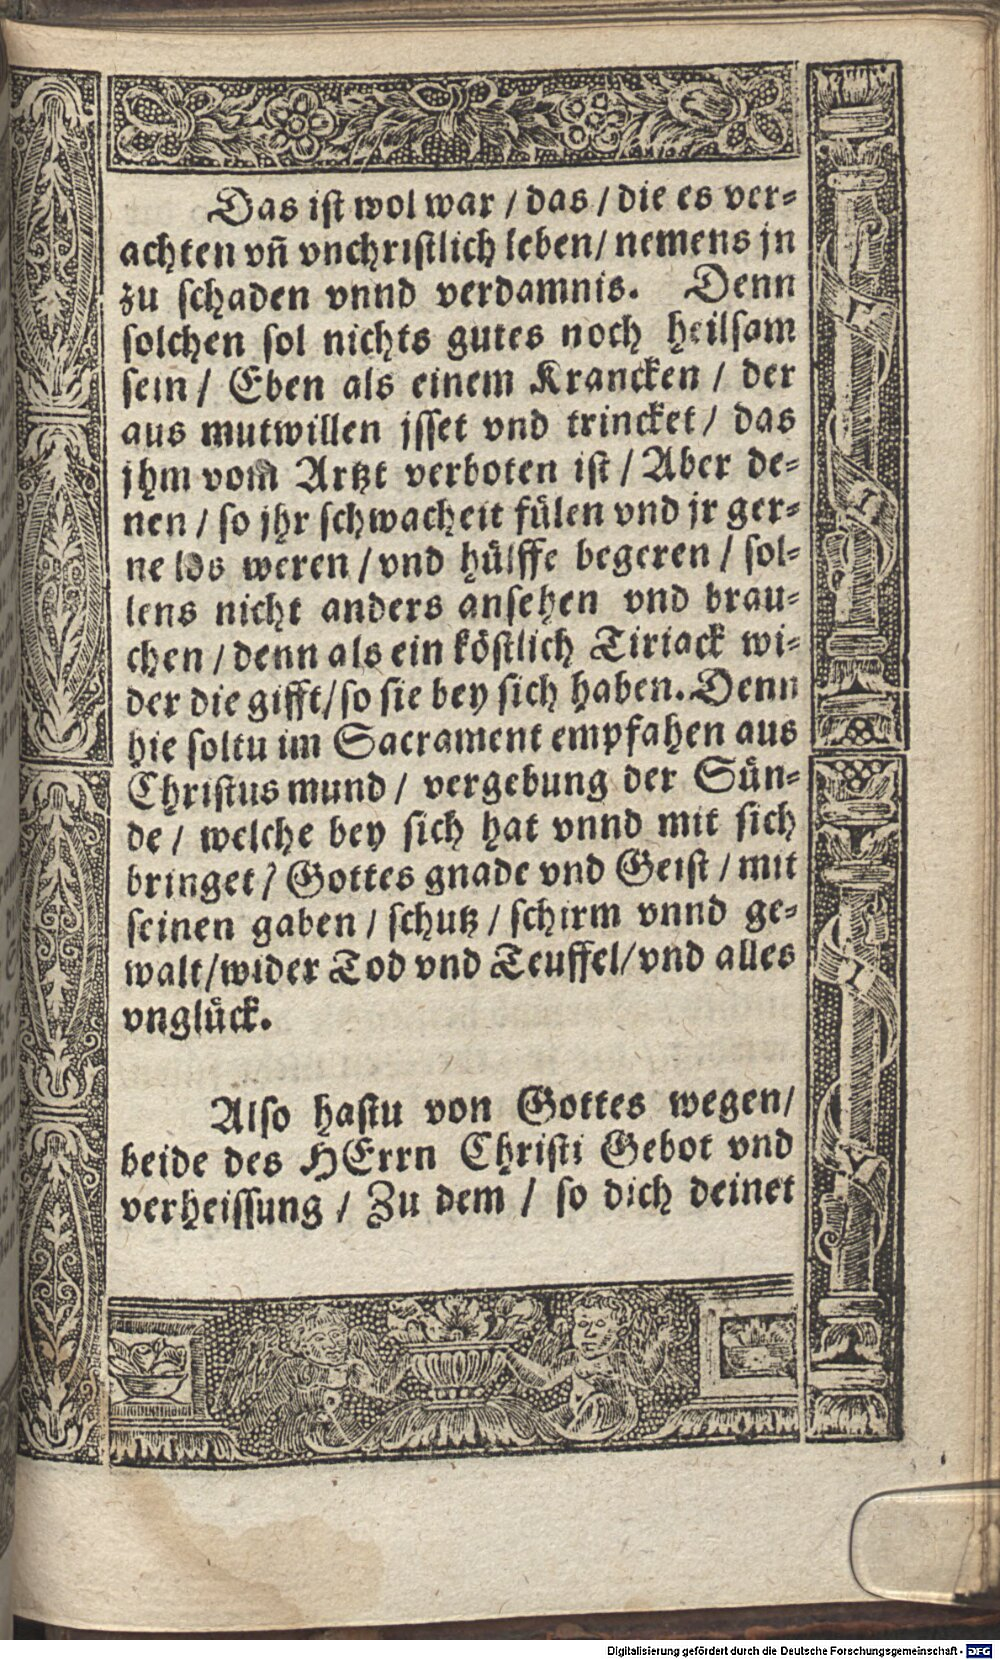 Das ist wol war / das / die es ver=
achten vñ vnchristlich leben / nemens jn
zu schaden vnnd verdamnis. Denn
solchen sol nichts gutes noch heilsam
sein / Eben als einem Krancken / der
aus mutwillen jsset vnd trincket / das
jhm vom Artzt verboten ist / Aber de=
nen / so jhr schwacheit fülen vnd jr ger=
ne los weren / vnd hülffe begeren / sol=
lens nicht anders ansehen vnd brau=
chen / denn als ein köstlich Tiriack wi=
der die gifft / so sie bey sich haben. Denn
hie soltu im Sacrament empfahen aus
Christus mund / vergebung der Sün=
de / welche bey sich hat vnnd mit sich
bringet / Gottes gnade vnd Geist / mit
seinen gaben / schutz / schirm vnnd ge=
walt / wider Tod vnd Teuffel / vnd alles
vnglück.
Also hastu von Gottes wegen /
beide des HErrn Christi Gebot vnd
verheissung / Zu dem / so dich deinet
Digitalisierung gefördert durch die Deutsche Forschungsgemeinschaft - DFG